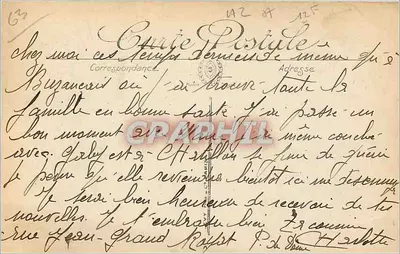 63 42 12F
Carte Postale
chez moi ces temps derniers de même qu'à
Correspondance Adresse
Buzançais où j'ai trouvé toute la
famille en bonne santé j'ai passé un
bon moment avec et même couché
avec Gaby est à Châtillon le de
je pense qu'elle reviendra bientôt ici me
je serai bien heureuse de recevoir de tes
nouvelles. Je t'embrasse bien
rue Jean-Grand P. de Dôme Charlotte
GRAPHIL